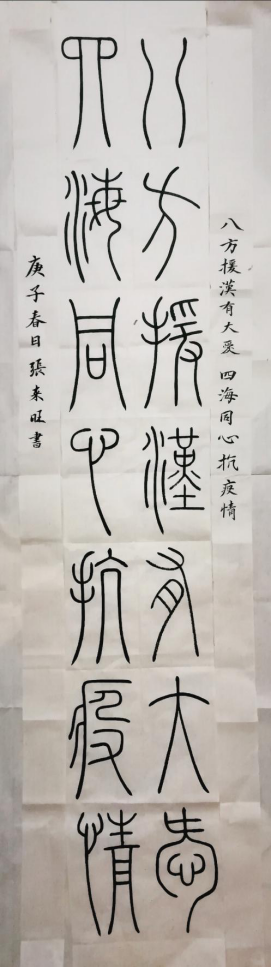 八方援漢有大愛 四海同心抗疫情
八方援漢有大愛
四海同心抗疫情
庚子春日張來旺書